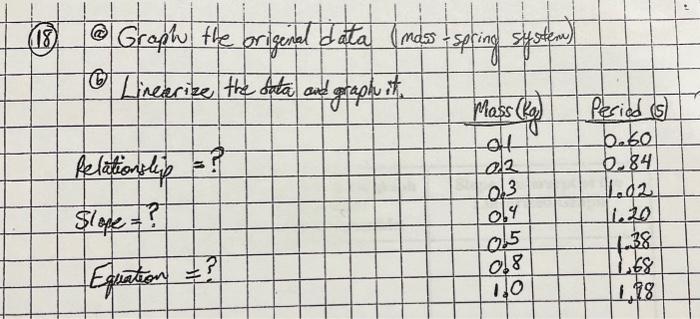 18 (a) Graph the original data (mass-spring system)
(b) Linearize the data and graph it.
Mass (kg) Period (s)
0.1 0.60
0.2 0.84
Relationship = ?
0.3 1.02
0.4 1.20
Slope = ?
0.5 1.38
0.8 1.68
Equation = ?
1.0 1.98